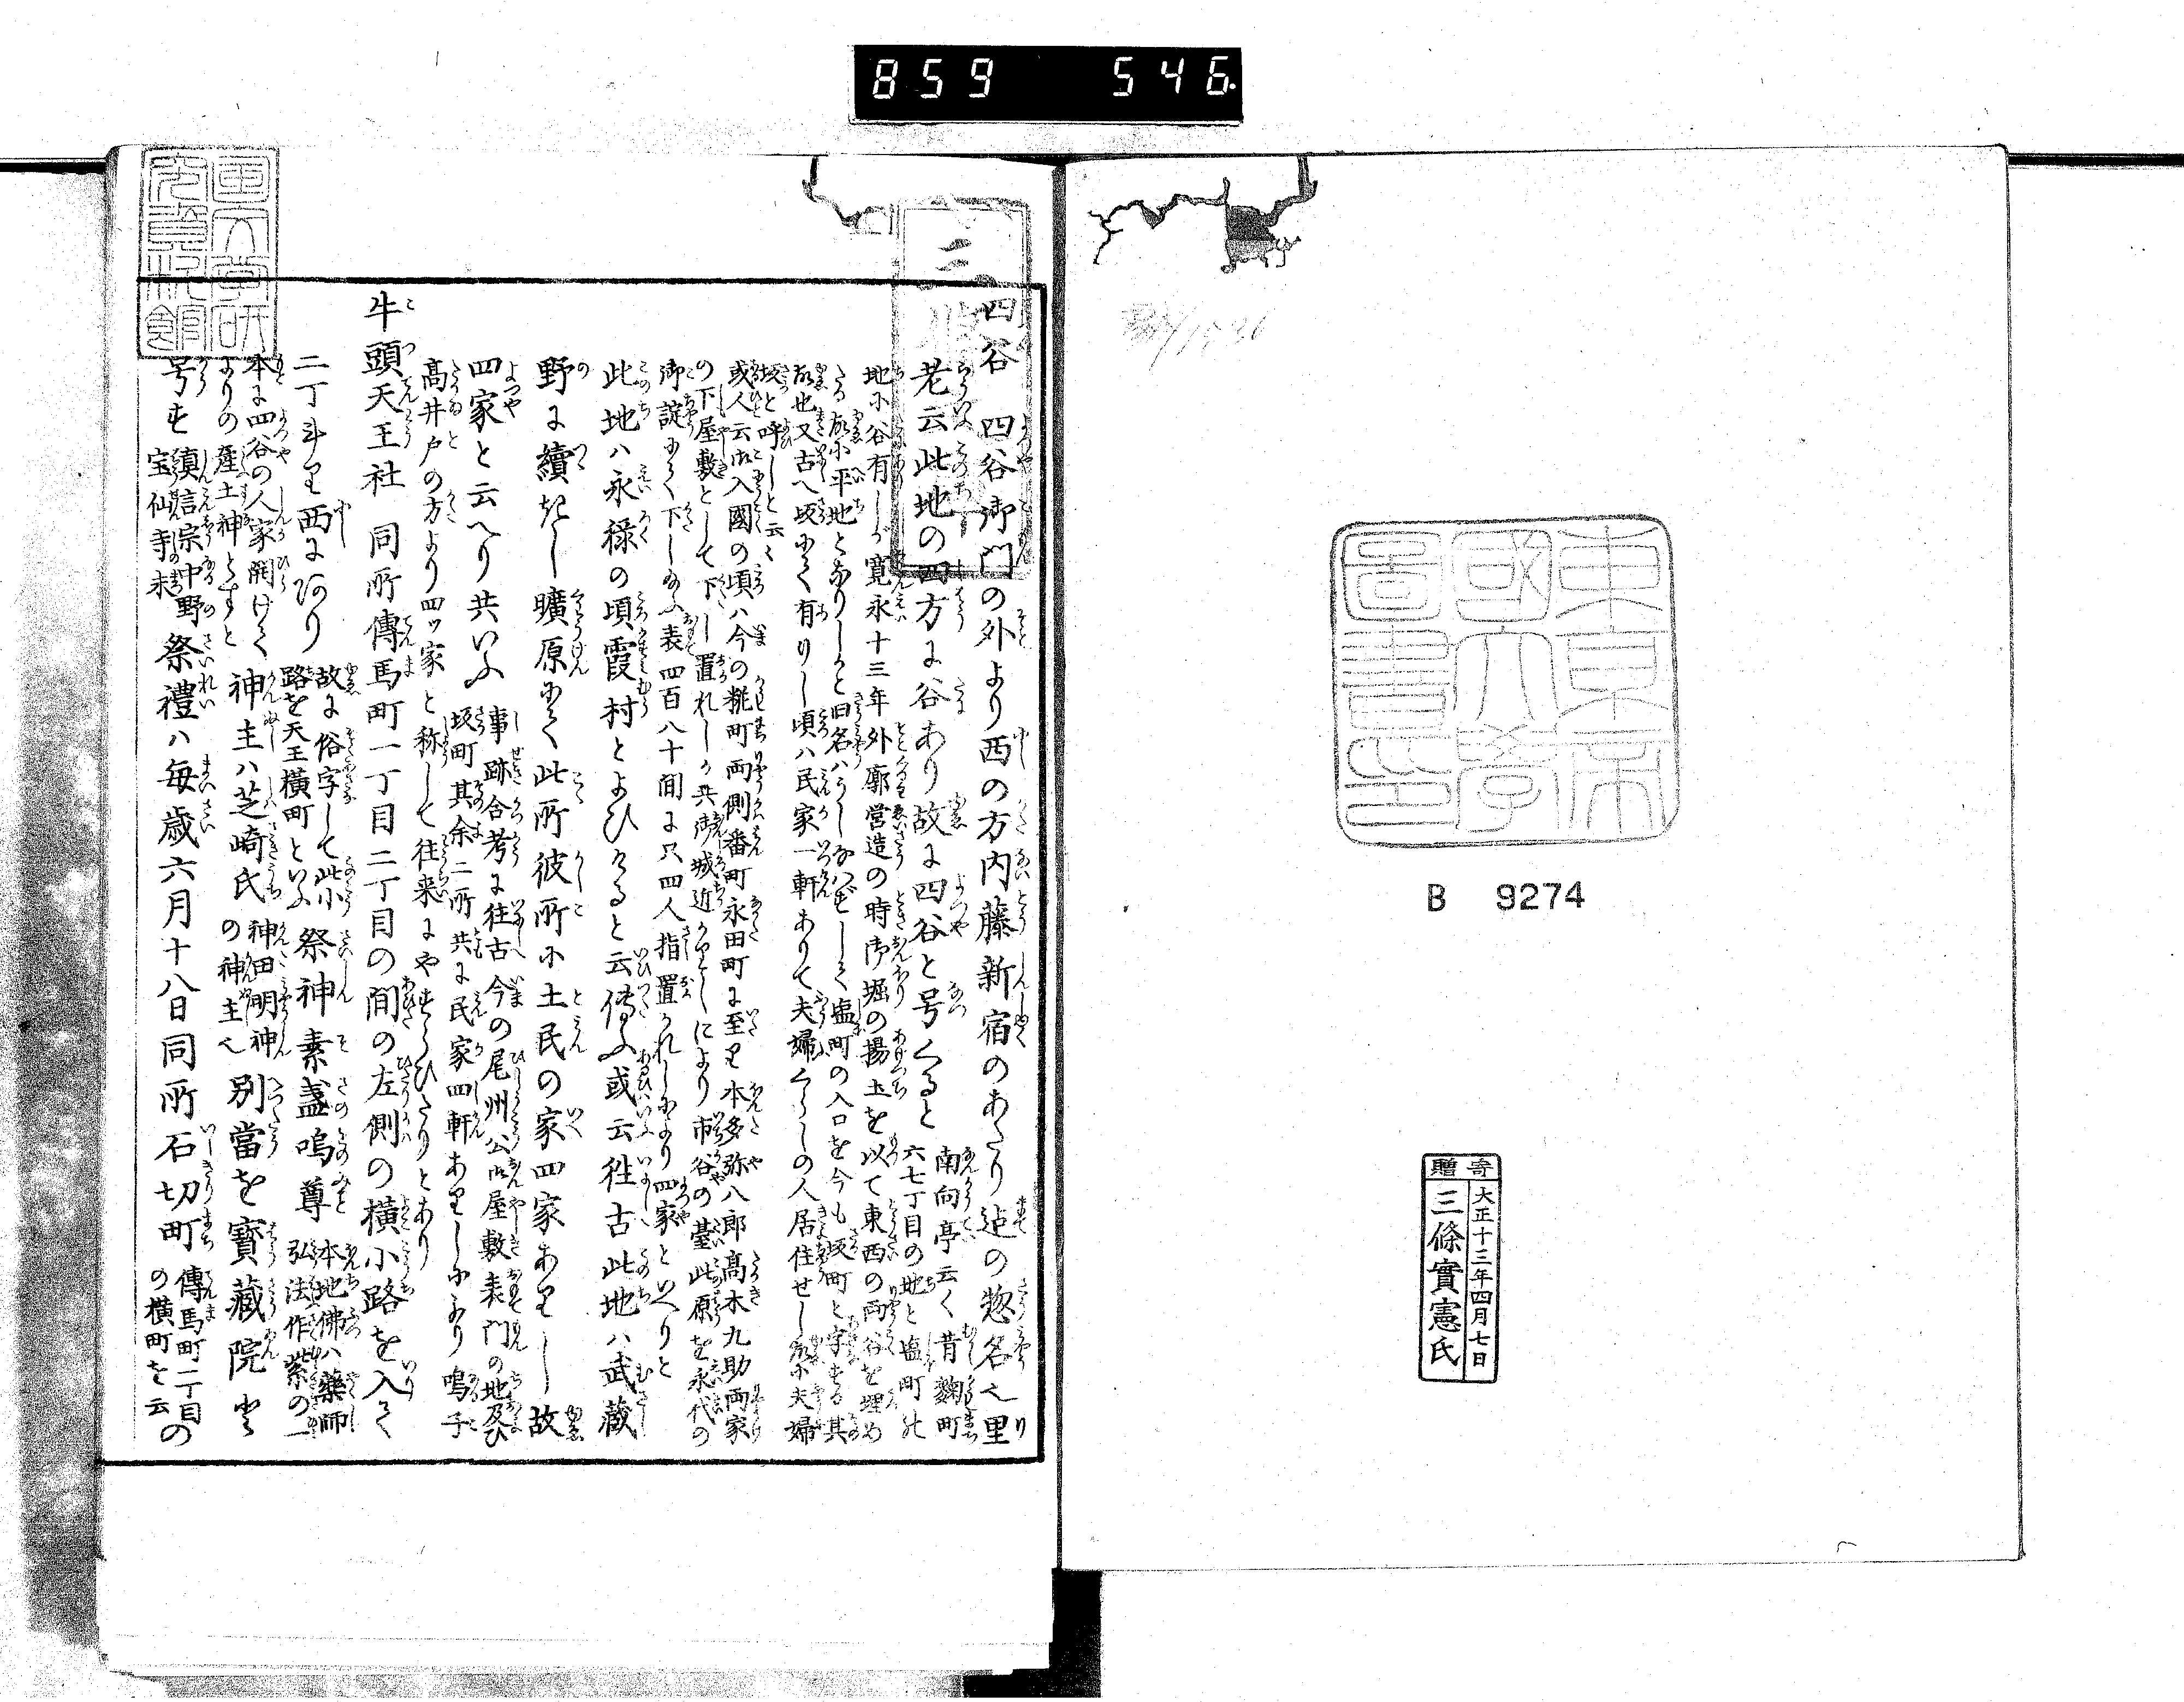 859 546
東京帝
國大學
圖書印
B 9274
寄贈
大正十三年四月七日
三條實憲氏
四谷 四谷御門の外より西の方内藤新宿のあたり迠の惣名也里
老云此地の四方に谷あり故に四谷と号くると
南向亭云く昔麹町
六七丁目の地と塩町の
地に谷有しが寛永十三年外廓営造の時御堀の揚土を以て東西の両谷を埋め
たる故に平地となりしと旧名はうしなはずして塩町の入口を今も坂町と字する其
故也又古へ坂にて有りし頃は民家一軒ありて夫婦くらしの人居住せし故に夫婦
坂と呼しと云く
或人云御入國の頃は今の糀町両側番町永田町に至り本多弥八郎高木九助両家
の下屋敷として下し置れしが共御城近かりしにより市谷の臺此原を永代の
御諚にて下し給ふ表四百八十間に只四人指置かれしにより四家といへりと
此地ハ永禄の頃霞村とよひけると云傳ふ或云往古此地ハ武蔵
野に續きし曠原にて此所彼所に土民の家四家ありし故
四家と云へり共いふ
事跡合考に往古今の尾州公御屋敷表門の地及ひ
坂町其余二所共に民家四軒ありしにより鳴子
高井戸の方より四ッ家と称して往来にやすらひたりとあり
牛頭天王社 同所傳馬町一丁目二丁目の間の左側の横小路を入て
二丁斗り西にあり
故に俗字して此小
路を天王横町といふ
祭神素盞嗚尊
本地佛ハ藥師
弘法作紫の一
本に四谷の人家開けて
よりの産土神とすと
神主ハ芝崎氏
神田明神
の神主也
別當を寳蔵院と
号す
真言宗中野
宝仙寺末
祭禮ハ毎歳六月十八日同所石切町
傳馬町二丁目の
の横町を云